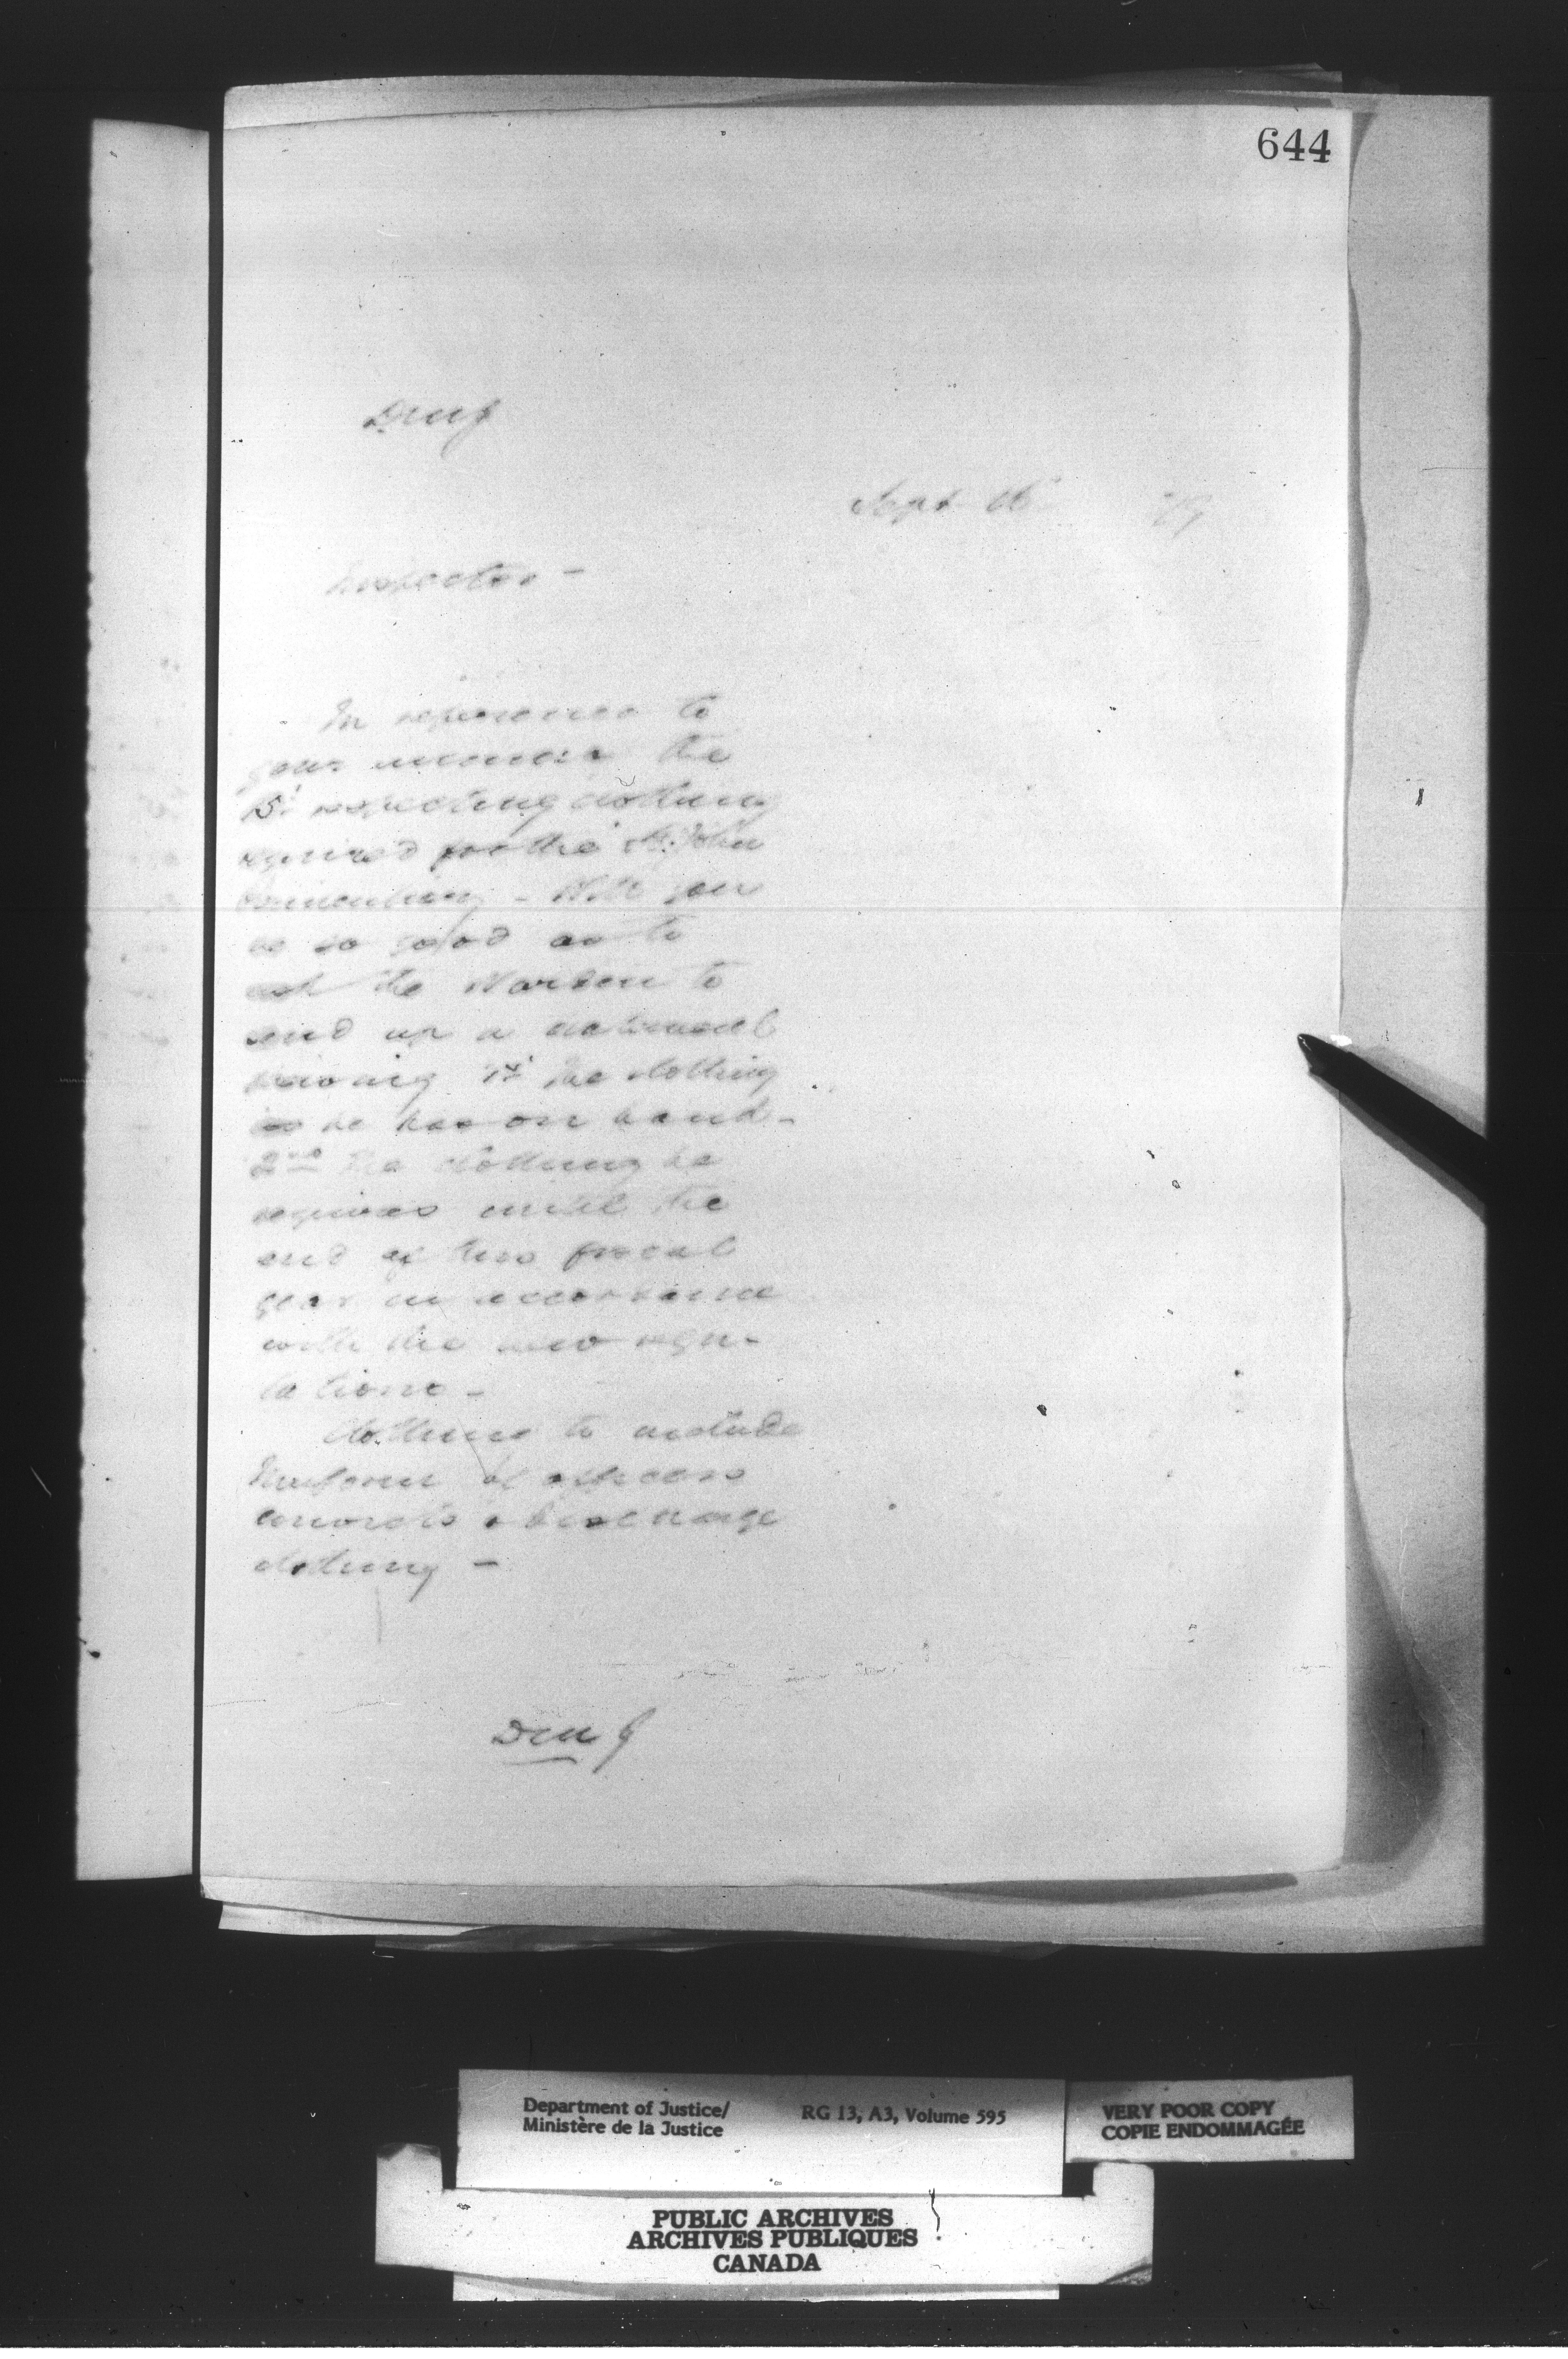 644
DMJ
Sept 16 79
Inspector -
In reference to
your memo of the
15th respecting clothing
required for the St. John
Penitentiary - Will you
be so good as to
ask the Warden to
send up a statement
showing 1st the clothing
he has on hand -
2nd the clothing he
requires until the
end of this fiscal
year in accordance
with the new regu-
lations -
Clothing to include
Uniform of officers
convicts & discharge
clothing -
DMJ
Department of Justice/
Ministère de la Justice
RG 13, A3, Volume 595
VERY POOR COPY
COPIE ENDOMMAGÉE
PUBLIC ARCHIVES
ARCHIVES PUBLIQUES
CANADA